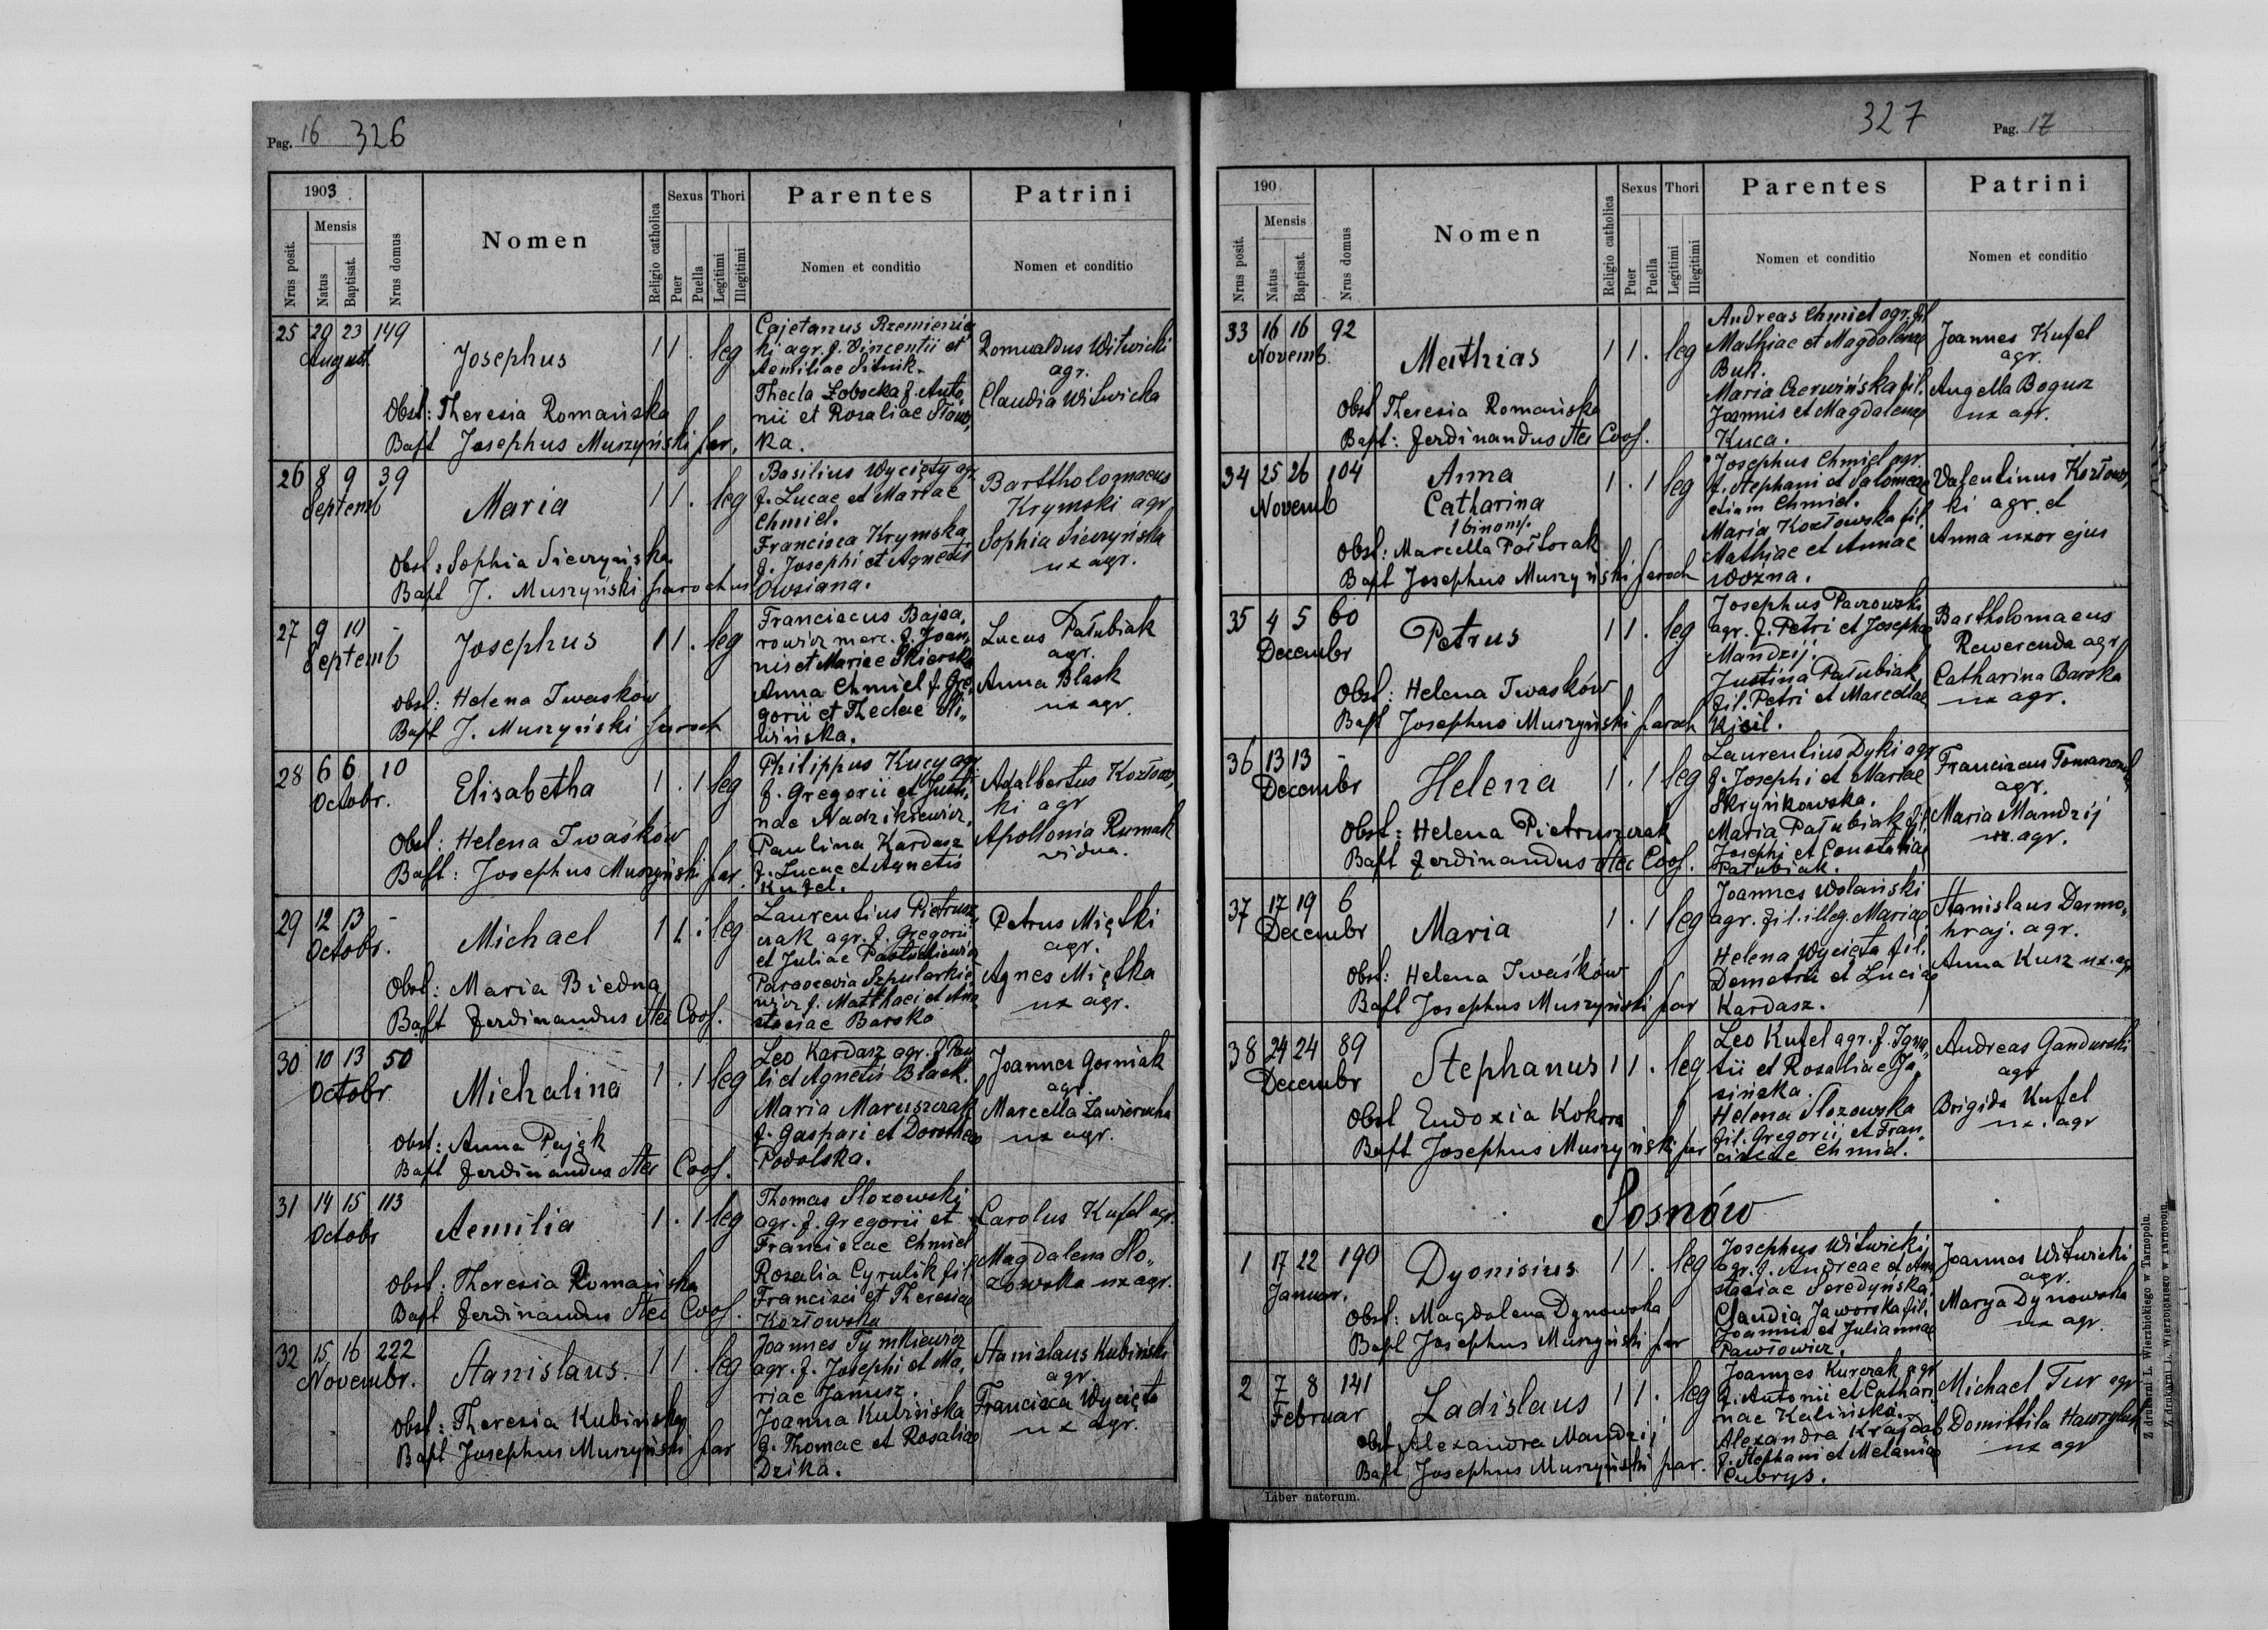 Pag. 16 326
1903
Nrus posit.
Mensis
Natus
Baptisat.
Nrus domus
Nomen
Religio catholica
Sexus
Puer
Puella
Thori
Legitimi
Illegitimi
Parentes
Nomen et conditio
Patrini
Nomen et conditio
25 20 23 149
August
Josephus
1 1 . leg
Obst: Theresia Romańska
Bapt Josephus Muszyński par.
Cajetanus Rzemienic
ki agr. f. Vincentii et
Aemiliae Sitnik.
Thecla Łobocka f. Anto,
nii et Rosaliae
ka.
Romualdus Witwicki
agr.
Claudia Witwicka
26 8 9 39
Septemb
Maria
1 1 . leg
Obst: Sophia Sierzyńska.
Bapt J. Muszyński parochus
Basilius Wycięty agr
f. Lucae et Mariae
Chmiel.
Francisca Krymska
f. Josephi et Agnetis
Owsiana.
Barttholomaeus
Krymski agr
Sophia Sierzyńska
ux agr.
27 9 10 -
Septemb
Josephus
1 1 . leg
Obst: Helena Iwasków
Bapt J. Muszyński paroch
Franciscus Bajsa,
rowicz merc. f. Joan,
nis et Mariae Skierska
Anna Chmiel f. Gre,
gorii et Theclae Sli,
wińska.
Lucas Pałubiak
agr.
Anna Błask
ux agr.
28 6 6 10
Octobr.
Elisabetha
1 . 1 leg
Obst: Helena Iwasków
Bapt: Josephus Muszyński par.
Philippus Kucy agr
f. Gregorii et Justi,
nae Nadzikiewicz.
Paulina Kardasz
f. Lucae et Agnetis
Kufel.
Adalbertus Kozłows,
ki agr
Apollonia Rumak
vidua.
29 12 13 -
Octobr.
Michael
1 1 . leg
Obst: Maria Biedna
Bapt Ferdinandus Stec Coop.
Laurentius Pietrusz
czak agr. f. Gregorii
et Juliae
Parascevia Szpularkie
wicz f. Matthaei et Ana
stasiae Barsko
Petrus Miętki
agr.
Agnes Miętka
ux agr.
30 10 13 50
Octobr
Michalina
1 . 1 leg
Obst: Anna Pająk
Bapt Ferdinandus Stec Coop.
Leo Kardasz agr. f. Pau
li et Agnetis Błask.
Maria Maruszczak
f. Gaspari et Dorotheae
Podolska.
Joannes Gorniak
agr.
Marcella Zawierucha
ux agr.
31 14 15 113
Octobr
Aemilia
1 . 1 leg
Obst: Theresia Romańska
Bapt Ferdinandus Stec Coop.
Thomas Slozowski
agr. f. Gregorii et
Franciscae Chmiel
Rosalia Cyrulik fil
Francisci et Theresiae
Kozłowska
Carolus Kufel agr.
Magdalena Slo,,
zowska ux agr.
32 15 16 222
Novembr.
Stanislaus.
1 1 . leg
Obst: Theresia Kubińska
Bapt Josephus Muszyński par
Joannes Tymkiewicz
agr. f. Josephi et Ma,
riae Janusz.
Joanna Kubińska
f. Thomae et Rosaliae
Dzika.
Stanislaus Kubiński
agr.
Francisca Wycięta
ux agr.
327 Pag. 17
190
Nrus posit.
Mensis
Natus
Baptisat.
Nrus domus
Nomen
Religio catholica
Sexus
Puer
Puella
Thori
Legitimi
Illegitimi
Parentes
Nomen et conditio
Patrini
Nomen et conditio
33 16 16 92
Novemb.
Mathias
1 1 . leg
Obst Theresia Romańska
Bapt: Ferdinandus Stec Coop.
Andreas Chmiel agr. fil
Mathiae et Magdalenae
Buk.
Maria Czerwińska fil.
Joannis et Magdalenae
Kuca.
Joannes Kufel
agr.
Angella Bogusz
ux agr.
34 25 26 104
Novemb
Anna
Catharina
1 binom.
1 . 1 leg
Obst: Marcella Pastorak
Bapt Josephus Muszyński paroch
Josephus Chmiel agr.
f. Stephani et Salomeae
etiam Chmiel.
Maria Kozłowska fil.
Mathiae et Annae
Wozna.
Valentinus Kozłows,
ki agr. et
Anna uxor ejus
35 4 5 60
Decembr
Petrus
1 1 . leg
Obst: Helena Iwasków
Bapt Josephus Muszyński paroch
Josephus Paczowski
agr. f. Petri et Josephae
Mandzij.
Justina Pałubiak
fil. Petri et Marcellae
Kisil.
Bartholomaeus
Rewerenda agr
Catharina Barska
ux agr.
36 13 13 -
Decembr
Helena
1 . 1 leg
Obst: Helena Pietruszczak
Bapt Ferdinandus Stec Coop.
Laurentius Dyki agr
f. Josephi et Mariae
Skryńkowska.
Maria Pałubiak fil.
Josephi et Constantiae
Pałubiak.
Franciscus
agr.
Maria Mandzij
ux. agr.
37 17 19 6
Decembr
Maria
1 . 1 leg
Obst: Helena Iwasków
Bapt Josephus Muszyński par
Joannes Wolański
agr. fil. illeg. Mariae
Helena Wycięta fil.
Demetrii et Luciae
Kardasz.
Stanislaus Darmo,
hraj. agr.
Anna Kusz ux. agr
38 24 24 89
Decembr
Stephanus
1 1 . leg
Obst Eudoxia Kokora
Bapt Josephus Muszyński par
Leo Kufel agr. f. Igna,
tii et Rosaliae Ja,
sińska.
Helena Slozowska
fil. Gregorii et Fran,
ciscae Chmiel.
Andreas Gandurski
agr
Brigida Kufel
ux. agr
Sosnów
1 17 22 190
Januar.
Dyonisius
1 1 . leg
Obst: Magdalena Dynowska
Bapt Josephus Muszyński par
Josephus Witwicki
agr. f. Andreae et Ana
stasiae Seredyńska
Claudia Jaworska fil.
Joannis et Juliannae
Pawłowicz.
Joannes Witwicki
agr.
Marya Dynowska
ux agr.
2 7 8 141
Februar
Ladislaus
1 1 . leg
Obst Alexandra Mandzij
Bapt Josephus Muszyński par.
Joannes Kurczak agr
f. Antonii et Cathari
nae Kalińska.
Alexandra Krajdab
f. Stephani et Melaniae
Cubrys.
Michael Tur agr
Domittila
ux agr
Liber natorum.
Z drukarni L. Wierzbickiego w Tarnopolu.
Z drukarni L. Wierzbickiego w Tarnopolu.